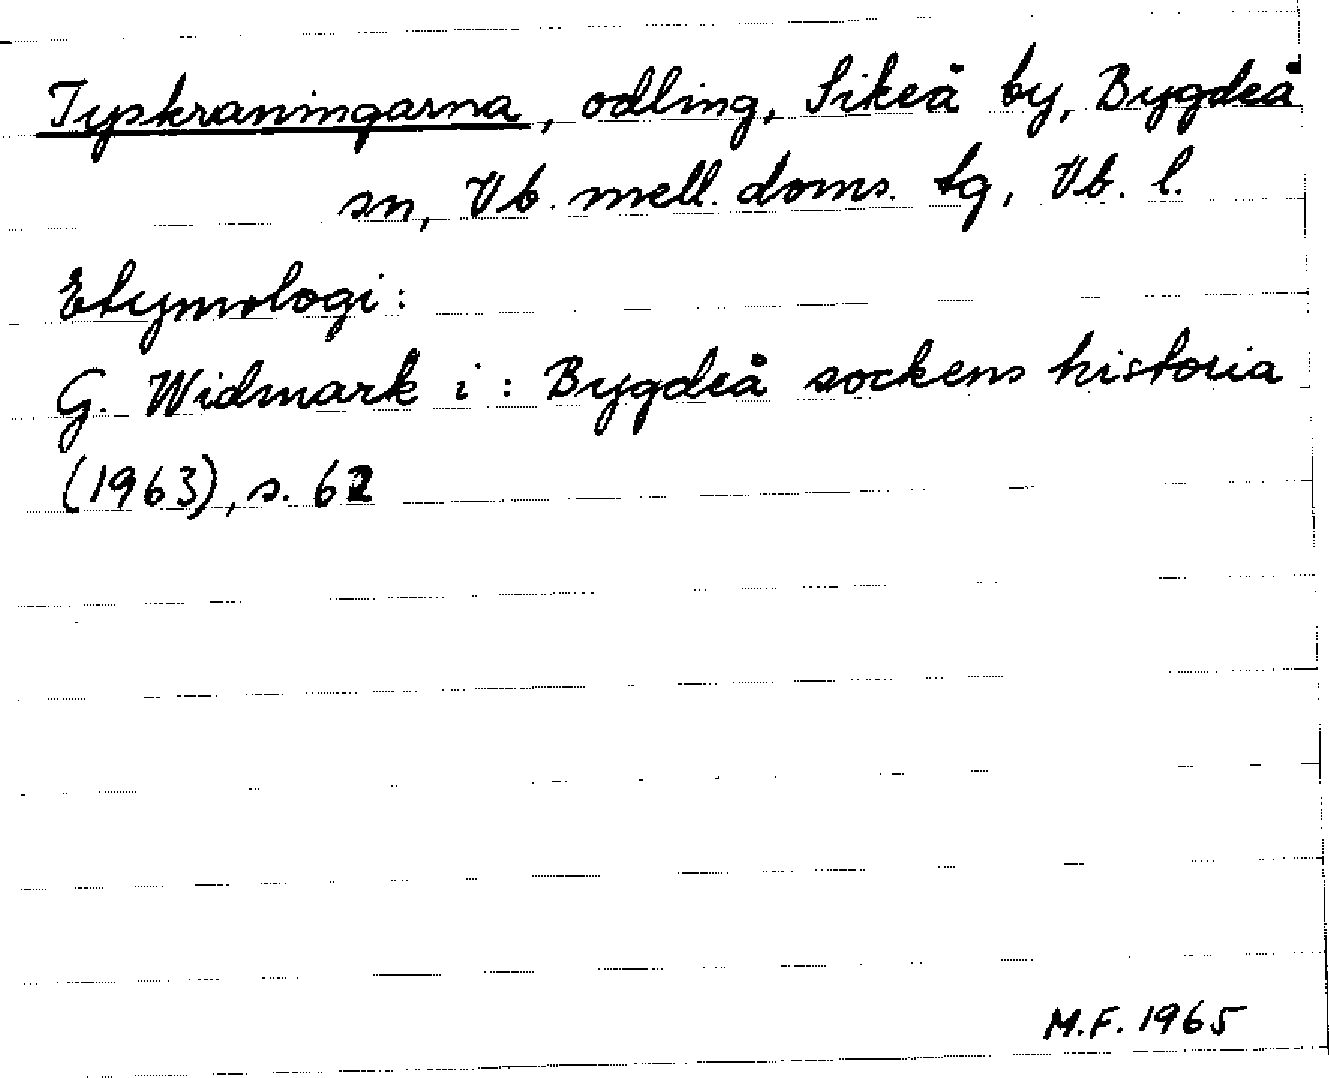 Tyskraningarna, odling, Sikeå by, Bygdeå
sn, Vb. mell. doms. tg, Vb. l.
Etymologi:
G. Widmark i: Bygdeå sockens historia
(1963), s. 62
M.F. 1965